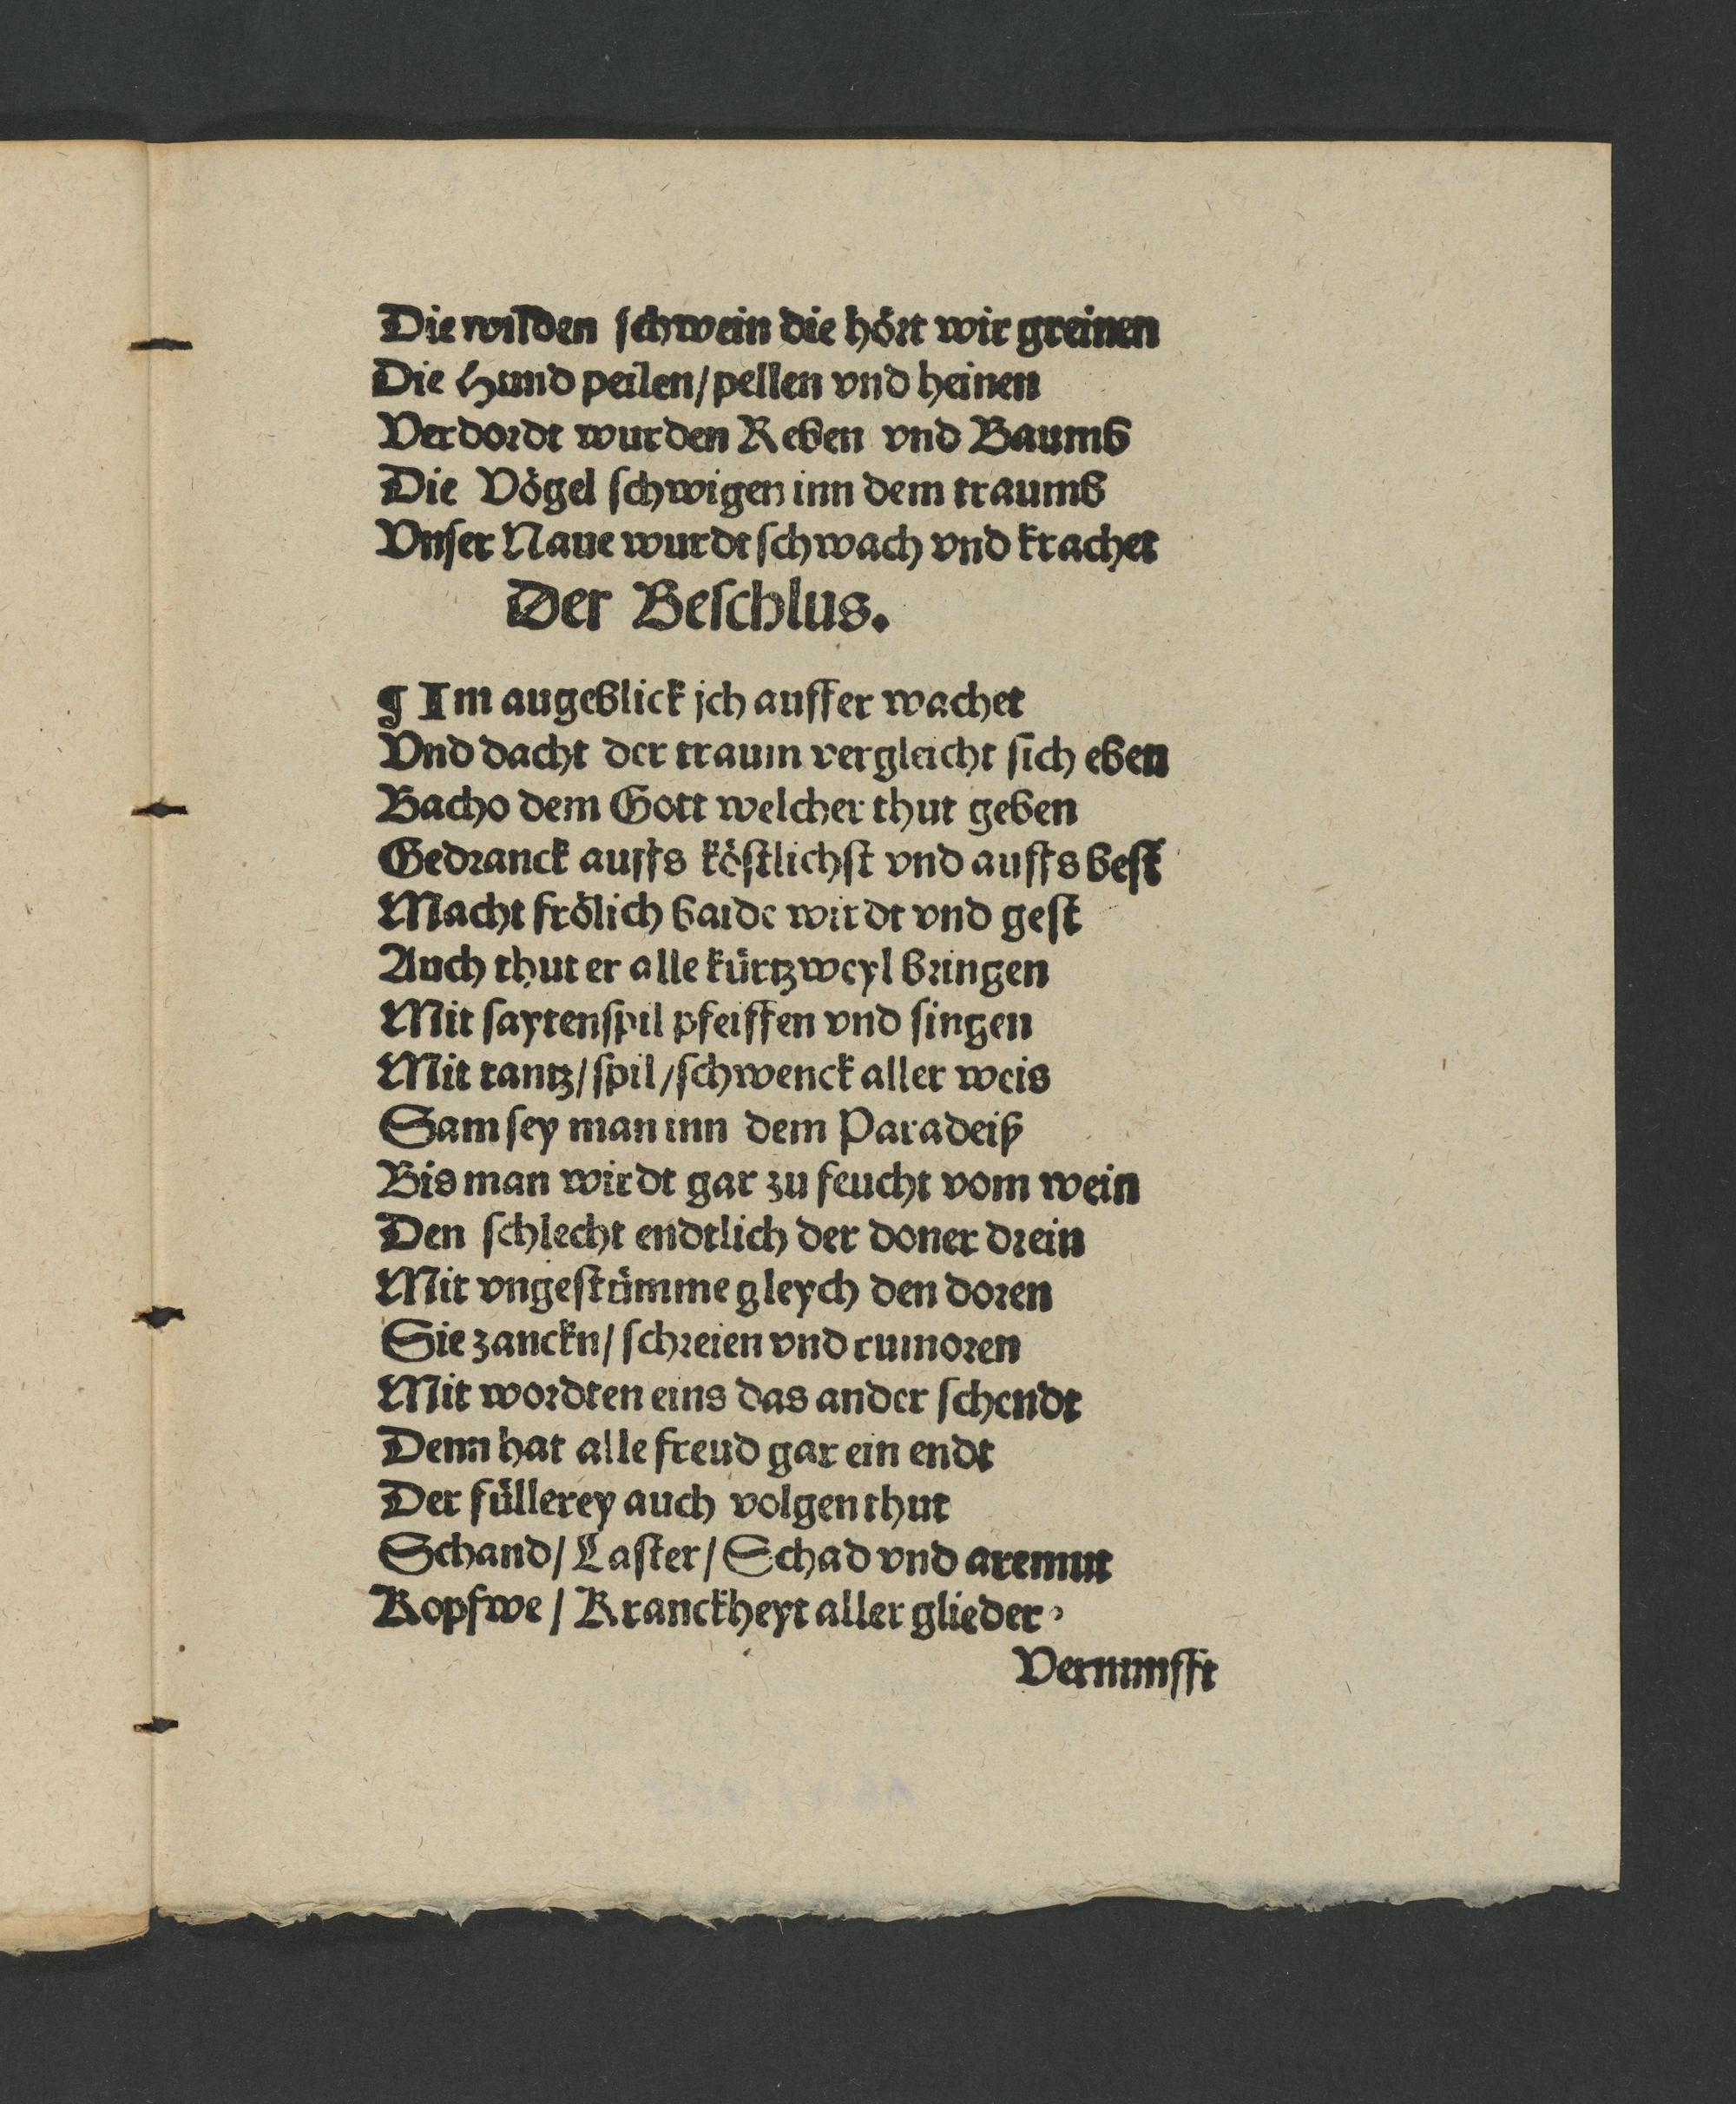 Die wilden schwein die hört wir greinen
Die Hund peilen/pellen vnd heinen
Verdordt wurden Reben vnd Baumb
Die Vögel schwigen inn dem traumb
Vnser Naue wurdt schwach vnd krachet
Der Beschlus.
¶ Im augeblick jch auffer wachet
Vnd dacht der traum vergleicht sich eben
Bacho dem Gott welcher thut geben
Gedranck auffs köstlichst vnd auffs best
Macht frölich baide wirdt vnd gest
Auch thut er alle kürtzweyl bringen
Mit saytenspil pfeiffen vnd singen
Mit tantz/spil/schwenck aller weis
Sam sey man inn dem Paradeiß
Bis man wirdt gar zu feucht vom wein
Den schlecht endtlich der doner drein
Mit vngestümme gleych den doren
Sie zanckn/schreien vnd rumoren
Mit wordten eins das ander schendt
Denn hat alle freud gar ein endt
Der füllerey auch volgen thut
Schand/Laster/Schad vnd aremut
Kopfwe/Kranckheyt aller glieder
Vernunfft